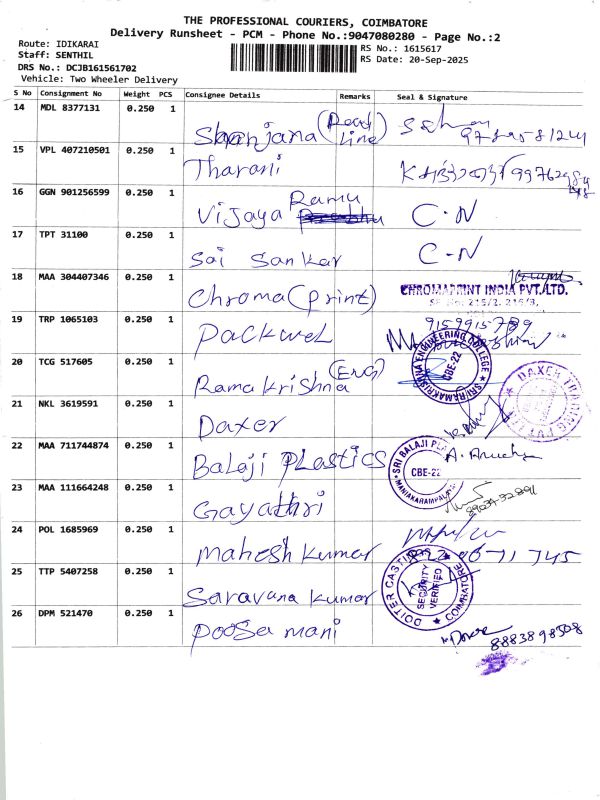 THE PROFESSIONAL COURIERS, COIMBATORE
Delivery Runsheet - PCM - Phone No.:9047080280 - Page No.:2
Route: IDIKARAI
RS No.: 1615617
Staff: SENTHIL
RS Date: 20-Sep-2025
DRS No.: DCJB161561702
Vehicle: Two Wheeler Delivery
S No Consignment No Weight PCS Consignee Details Remarks Seal & Signature
14 MDL 8377131 0.250 1 Sanjana (Pearl Line)
15 VPL 407210501 0.250 1 Tharani
16 GGN 901256599 0.250 1 Vijaya Ramu C-N
17 TPT 31100 0.250 1 Sai Sankar C-N
18 MAA 304407346 0.250 1 Chroma (Print) CHROMAPRINT INDIA PVT.LTD.
SF No: 215/2, 216/3,
19 TRP 1065103 0.250 1 Packwel 9159915789
20 TCG 517605 0.250 1 Rama Krishna (Eng) SRI RAMAKRISHNA ENGINEERING COLLEGE CBE-22
21 NKL 3619591 0.250 1 Daxer DAXER TRADING
22 MAA 711744874 0.250 1 Balaji Plastics SRI BALAJI CBE-22
23 MAA 111664248 0.250 1 Gayathri
24 POL 1685969 0.250 1 Mahesh Kumar
25 TTP 5407258 0.250 1 Saravana Kumar SECURITY VERIFIED COIMBATORE
26 DPM 521470 0.250 1 Poosa mani 8883898508